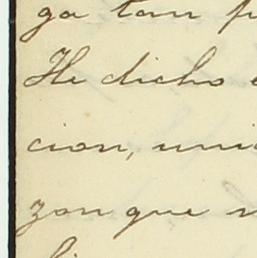 ga tan
He dicho
cion, uni
zon que